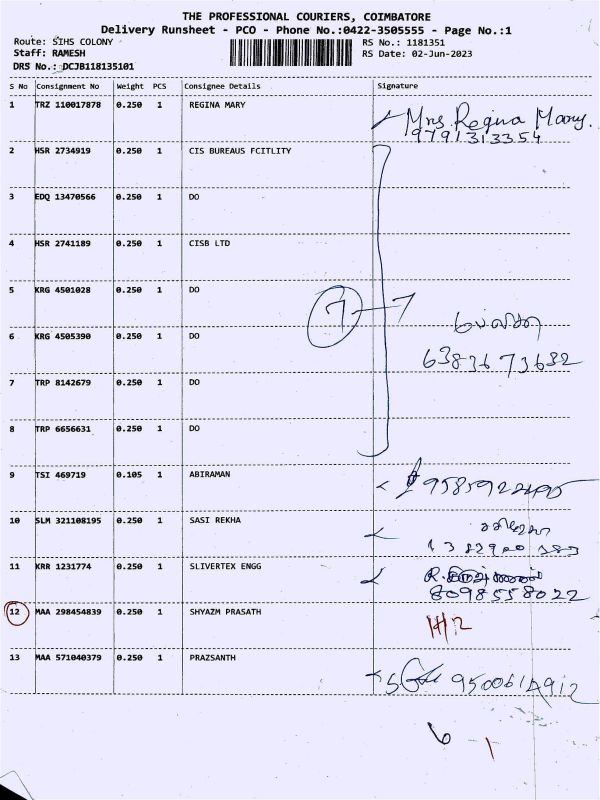 THE PROFESSIONAL COURIERS, COIMBATORE
Delivery Runsheet - PCO - Phone No.:0422-3505555 - Page No.:1
Route: SIHS COLONY RS No.: 1181351
Staff: RAMESH RS Date: 02-Jun-2023
DRS No.: DCJB118135101
S No Consignment No Weight PCS Consignee Details Signature
1 TRZ 110017878 0.250 1 REGINA MARY Mrs Regina Mary.
9791313354
2 HSR 2734919 0.250 1 CIS BUREAUS FCITLITY
3 EDQ 13470566 0.250 1 DO
4 HSR 2741189 0.250 1 CISB LTD
5 KRG 4501028 0.250 1 DO
7 7
6 KRG 4505390 0.250 1 DO
6383673632
7 TRP 8142679 0.250 1 DO
8 TRP 6656631 0.250 1 DO
9 TSI 469719 0.105 1 ABIRAMAN
10 SLM 321108195 0.250 1 SASI REKHA
11 KRR 1231774 0.250 1 SLIVERTEX ENGG
8098558022
12 MAA 298454839 0.250 1 SHYAZM PRASATH
13 MAA 571040379 0.250 1 PRAZSANTH
9500614912
6 1